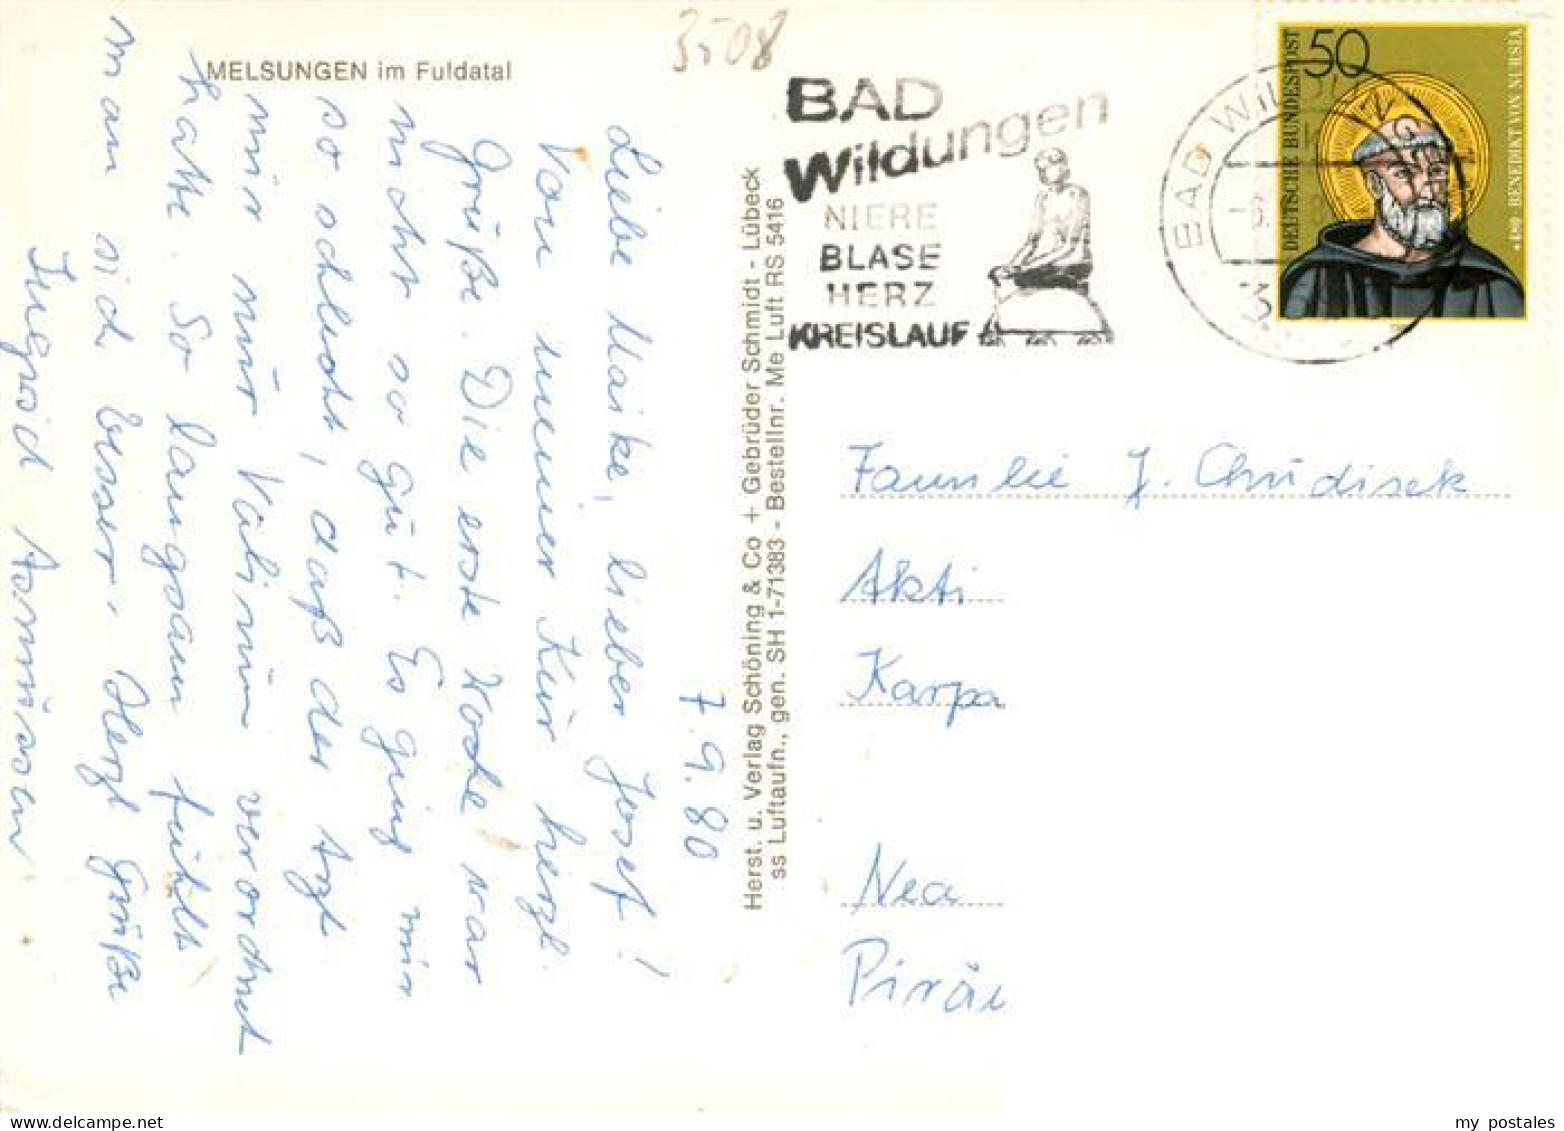 MELSUNGEN im Fuldatal
3508
7.9.80
Liebe Maike, lieber Josef!
Von meiner Kur herzl.
Grüße. Die erste Woche war
nicht so gut. Es ging mir
so schlecht, daß der Arzt
mir nur Valium verordnet
hatte. So langsam fühlt
man sich besser. Herzl. Grüße
Ingrid
Herst. u. Verlag Schöning & Co + Gebrüder Schmidt - Lübeck
ss Luftaufn., gen. SH 1-71383 - Bestellnr. Me Luft RS 5416
BAD
Wildungen
NIERE
BLASE
HERZ
KREISLAUF
BAD WILDUNGEN
DEUTSCHE BUNDESPOST
50
*480 BENEDIKT VON NURSIA
Familie J. Chudisek
Akti
Karpa
Nea
Piräu
my postales